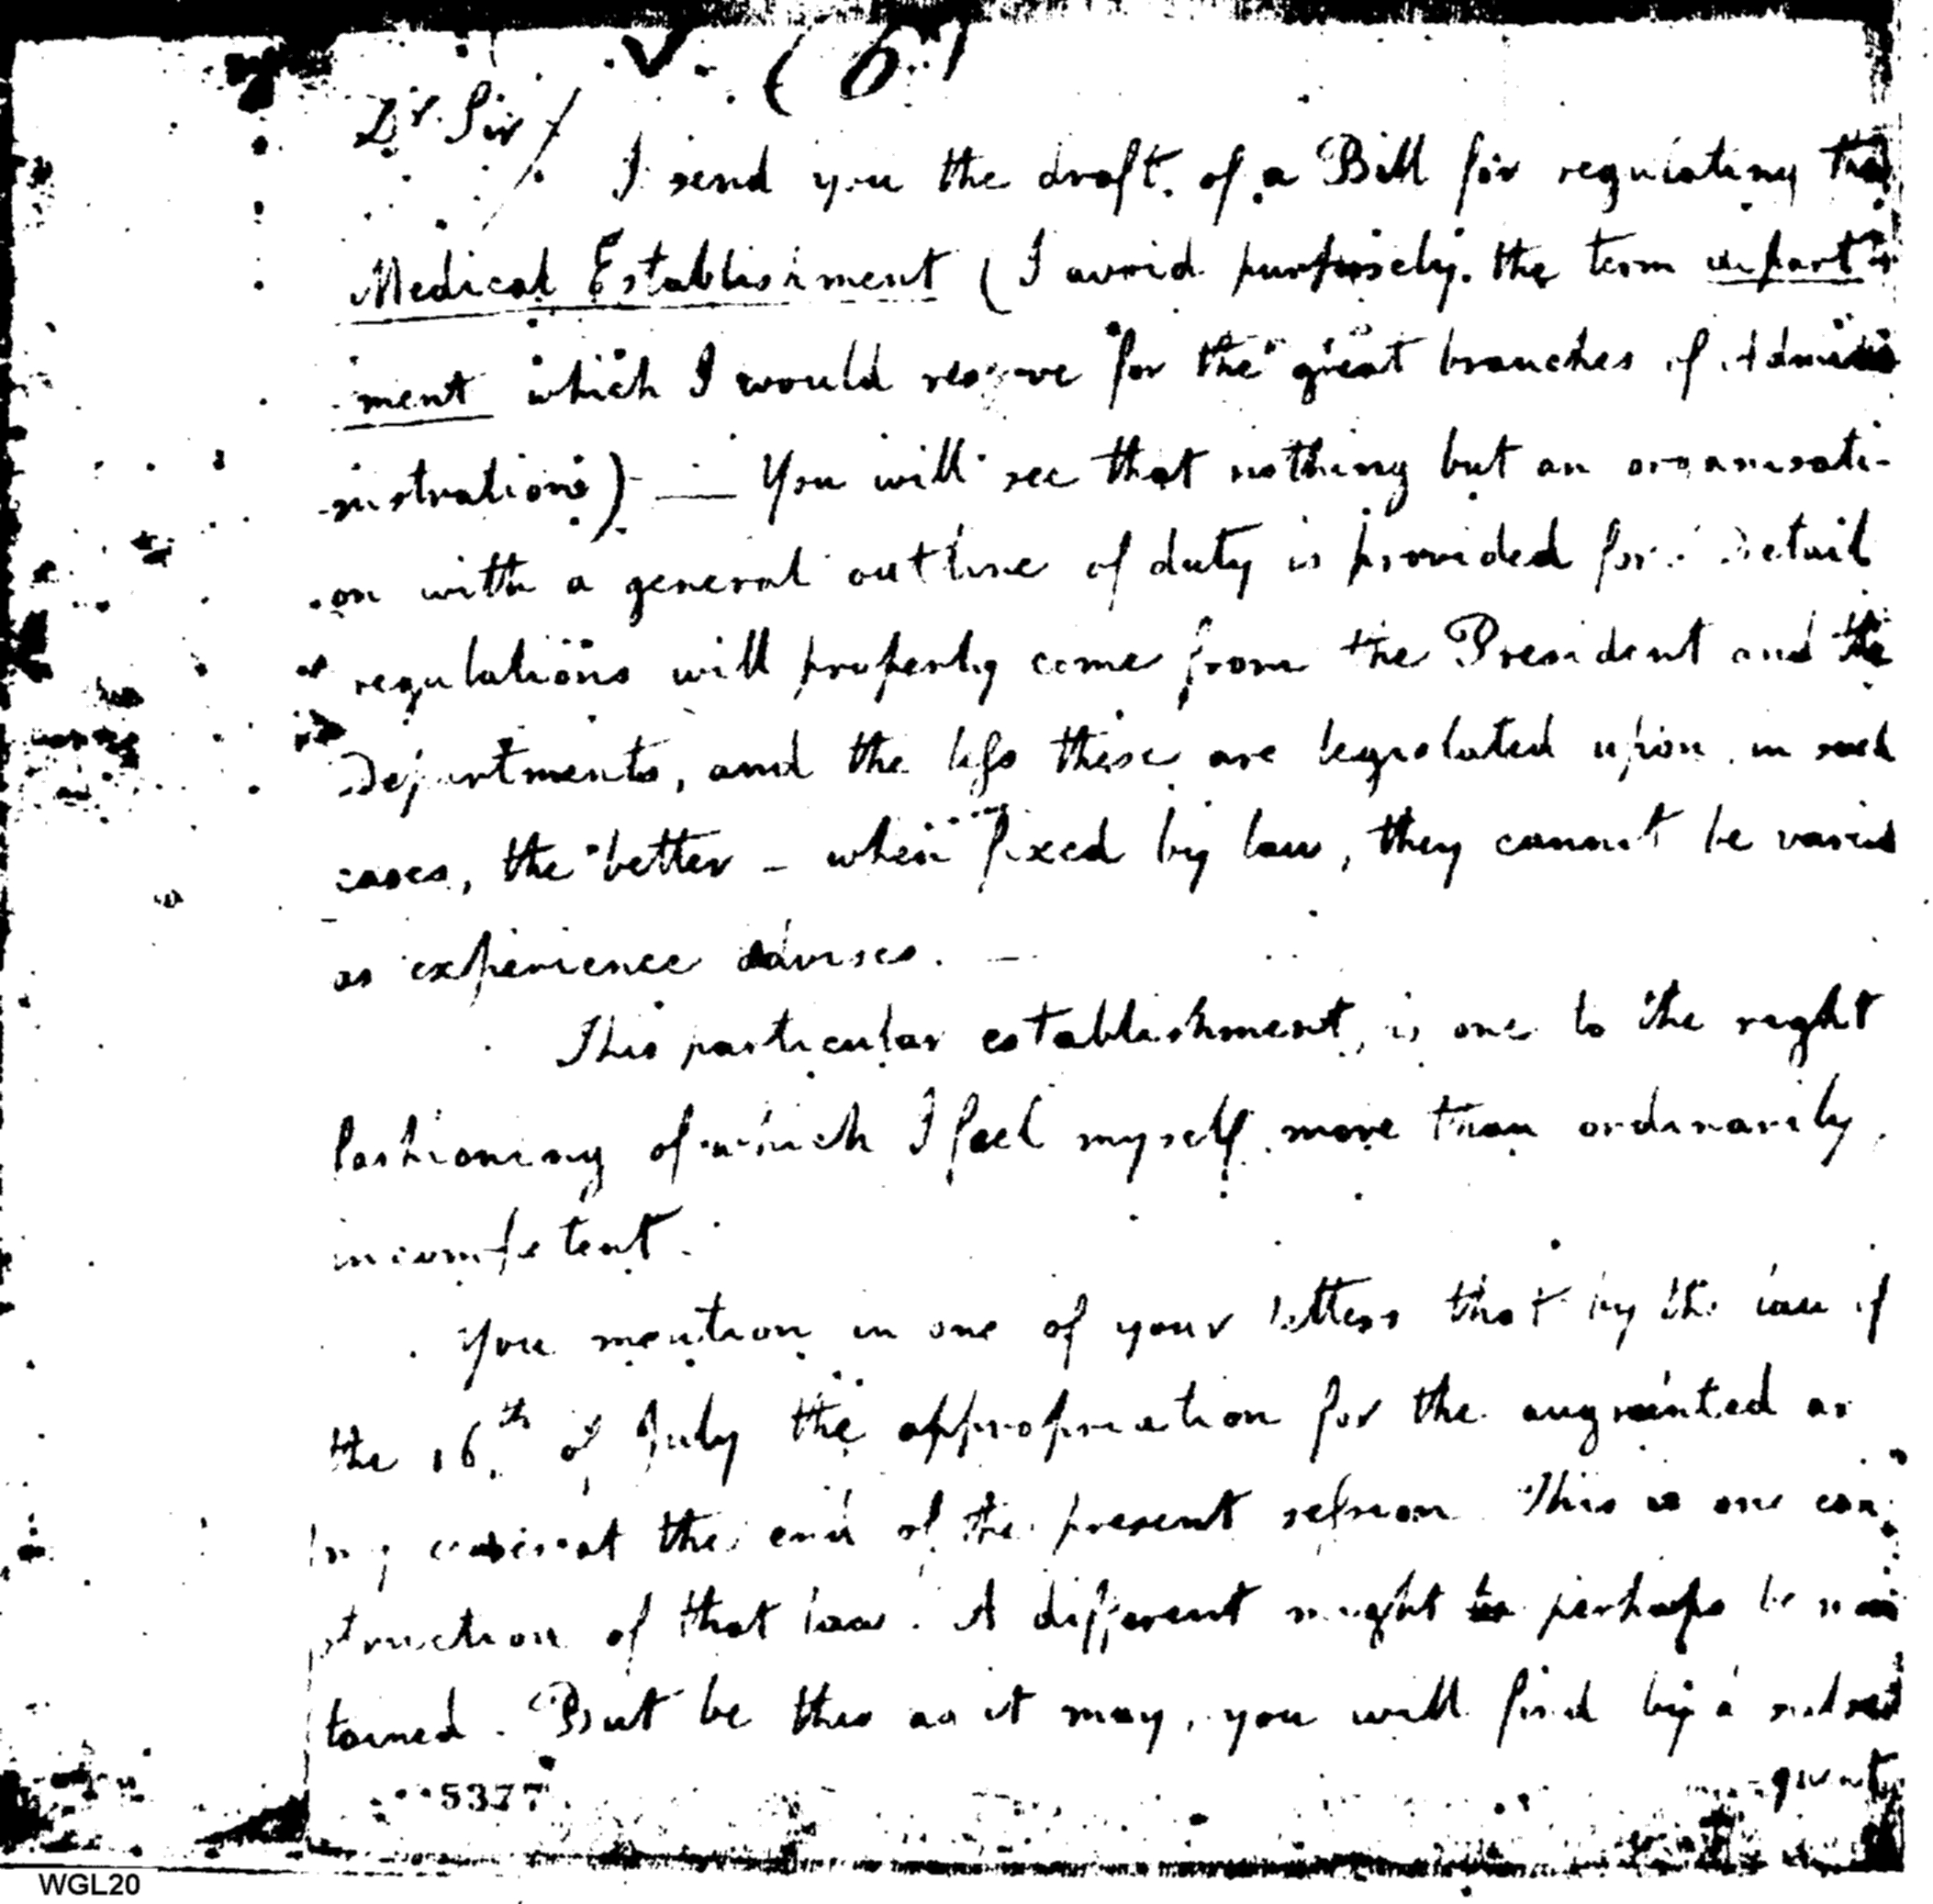 (6)
Dr. Sir/
I send you the draft of a Bill for regulating the
Medical Establishment (I avoid purposely the term depart-
ment which I would reserve for the great branches of Admi-
nistration) — You will see that nothing but an organisati-
on with a general outline of duty is provided for. Detail
regulations will properly come from the President and the
Departments, and the less these are legislated upon, in such
cases, the better – when fixed by law, they cannot be varied
as experience advises. —
This particular establishment, is one to the right
fashioning of which I feel myself more than ordinarily,
incompetent.
You mention in one of your letters that by the law of
the 16th of July the appropriation for the augmented ar
my at the end of the present session This is one con
struction of that law. A different might perhaps be main
tained. But be this as it may, you will find by a subse
quent
5377
WGL20